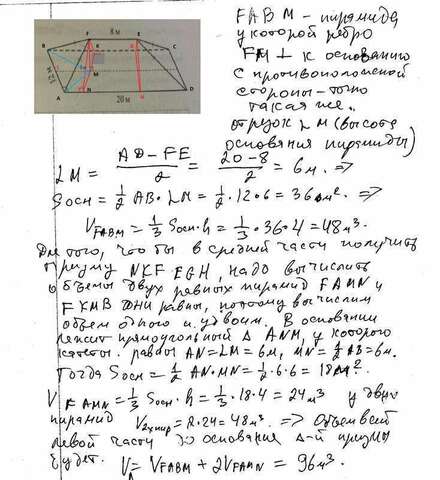 8 м
F E
B K C
12 м
M
A N D
20 м
FABM – пирамида,
у которой ребро
FM ⊥ к основанию
с противоположной
стороны – точно
такая же.
отрезок LM (высота
основания пирамиды)
LM = (AD – FE)/2 = (20 – 8)/2 = 6 м. ⇒
Sосн = 1/2 AB · LM = 1/2 · 12 · 6 = 36 м². ⇒
V_FABM = 1/3 Sосн · h = 1/3 · 36 · 4 = 48 м³.
Для того, чтобы в средней части получить
призму NKF EGH, надо вычислить
объемы двух равных пирамид FAMN и
FKMB они равны, поэтому вычислим
объем одного и удвоим. В основании
лежит прямоугольный Δ ANM, у которого
катеты равны AN = LM = 6 м, MN = 1/2 AB = 6 м.
Тогда Sосн = 1/2 AN · MN = 1/2 · 6 · 6 = 18 м².
V_FAMN = 1/3 Sосн · h = 1/3 · 18 · 4 = 24 м³ у двух
пирамид V2х пир = 2 · 24 = 48 м³. ⇒ Объем всей
левой части до основания Δ-й призмы
будет. V = V_FABM + 2V_FAMN = 96 м³.